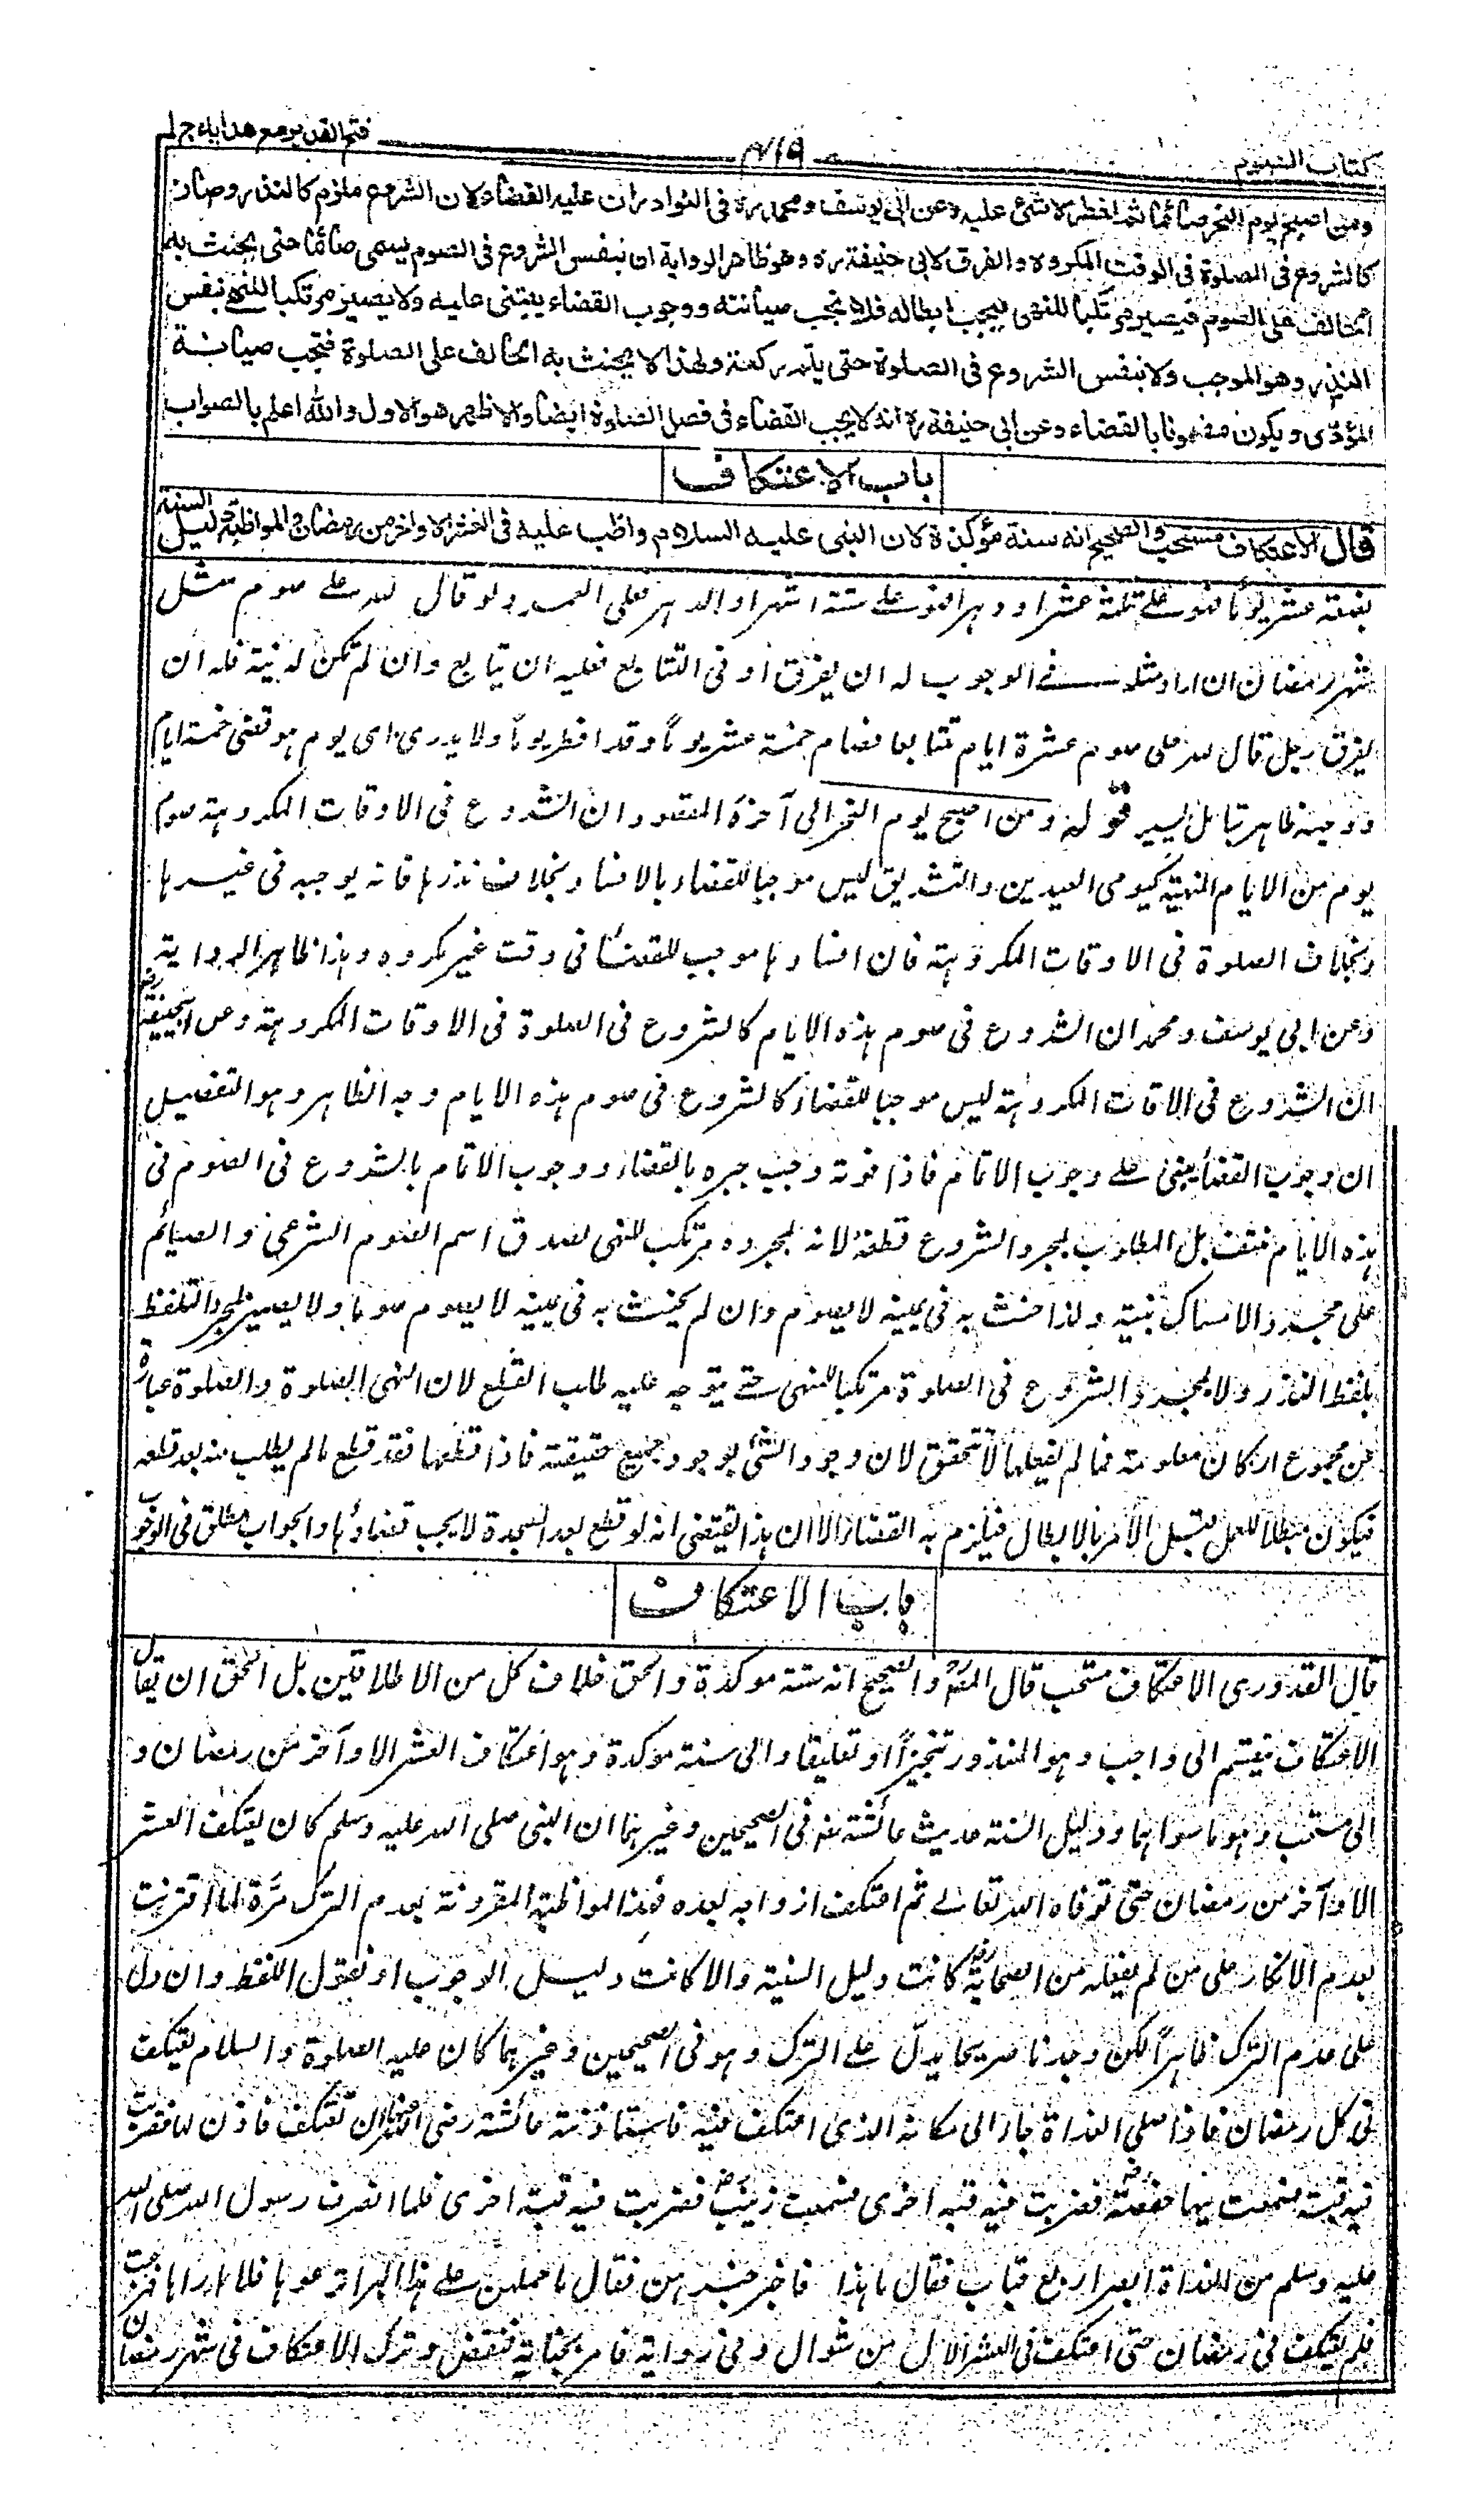 كتاب الصوم ٤١٩ فتح القدير مع هدايه ج ١
ومن اصبح يوم النحر صائما ثم افطر لا شئ عليه وعن ابى يوسف ومحمد ره فى النوادر ان عليه القضاء لان الشروع ملزم كالنذر وصار
كالشروع فى الصلوة فى الوقت المكروه والفرق لابى حنيفة ره وهو ظاهر الرواية ان بنفس الشروع فى الصوم يسمى صائما حتى يحنث به
الحالف على الصوم فيصير مرتكبا للنهى فيجب ابطاله فلا تجب صيانته ووجوب القضاء يبتنى عليه ولا يصير مرتكبا للنهى بنفس
النذر وهو الموجب ولا بنفس الشروع فى الصلوة حتى يتم ركعة ولهذا لا يحنث به الحالف على الصلوة فتجب صيانة
المؤدى ويكون مضمونا بالقضاء وعن ابى حنيفة ره انه لا يجب القضاء فى فصل الصلوة ايضا والاظهر هو الاول والله اعلم بالصواب
باب الاعتكاف
قال الاعتكاف مستحب والصحيح انه سنة مؤكدة لان النبى عليه السلام واظب عليه فى العشر الاواخر من رمضان والمواظبة دليل السنة
بضعة عشر يوما فهو على ثلثة عشر او دهرا فهو على ستة اشهر او الدهر فعلى العمر ولو قال لله على صوم مثل
شهر رمضان ان اراد مثله فى الوجوب له ان يفرق او فى التتابع فعليه ان يتابع وان لم تكن له نية فله ان
يفرق رجل قال لله على صوم عشرة ايام متتابعا فصام خمسة عشر يوما وقد افطر يوما ولا يدرى اى يوم هو قضى خمسة ايام
ووجهه ظاهر بتامل يسير قوله ومن اصبح يوم النحر الى آخره المقصود ان الشروع فى الاوقات المكروهة صوم
يوم من الايام المنهية كيومى العيدين والتشريق ليس موجبا للقضاء بالافساد بخلاف نذرها فانه يوجبه فى غيرها
وبخلاف الصلوة فى الاوقات المكروهة فان افسادها موجب للقضاء فى وقت غير مكروه وهذا ظاهر الرواية
وعن ابى يوسف ومحمد ان الشروع فى صوم هذه الايام كالشروع فى الصلوة فى الاوقات المكروهة وعن ابيحنيفة رض
ان الشروع فى الاقات المكروهة ليس موجبا للقضاء كالشروع فى صوم هذه الايام وجه الظاهر وهو التفصيل
ان وجوب القضاء يبتنى على وجوب الاتمام فاذا فوته وجب جبره بالقضاء ووجوب الاتمام بالشروع فى الصوم فى
هذه الايام منتف بل المطلوب بمجرد الشروع قطعه لانه بمجرده مرتكب للنهى لصدق اسم الصوم الشرعى والصيائم
على مجرد الامساك بنية ولذا حنث به فى يمينه لا يصوم وان لم يحنث به فى يمينه لا يصوم صوما ولا يصير بمجرد التلفظ
بلفظ النذر ولا بمجرد الشروع فى الصلوة مرتكبا للنهى حتى يتوجه عليه طلب القطع لان النهى الصلوة والصلوة عبارة
عن مجموع اركان معلومة فما لم يفعلها لا تتحقق لان وجود الشئ بوجود جميع حقيقته فاذا قطعها فقد قطع ما لم يطلب منه بعد قطعه
فيكون مبطلا للعمل قبل الامر بالابطال فيلزم به القضاء الا ان هذا يقتضى انه لو قطع بعد السجدة لا يجب قضاؤها والجواب مطلق فى الوجوب
باب الاعتكاف
قال القدورى الاعتكاف مستحب قال المص والصحيح انه سنة موكدة والحق خلاف كل من الاطلاقين بل الحق ان يقال
الاعتكاف ينقسم الى واجب وهو المنذور تنجيزاً او تعليقا والى سنة موكدة وهو اعتكاف العشر الاواخر من رمضان و
الى مستحب وهو ما سواهما ودليل السنة حديث عائشة رض فى الصحيحين وغيرهما ان النبى صلى الله عليه وسلم كان يعتكف العشر
الاواخر من رمضان حتى توفاه الله تعالے ثم اعتكف ازواجه بعده فهذه المواظبة المقرونة بعدم الترك مرَّة لما اقترنت
بعدم الانكار على من لم يفعله من الصحابة رض كانت دليل السنية والا كانت دليل الوجوب او نقول اللفظ وان دل
على عدم الترك ظاهراً لكن وجدنا صريحا يدلّ على الترك وهو فى الصحيحين وغيرهما كان عليه الصلوة والسلام يعتكف
فى كل رمضان فاذا صلى الغداة جاء الى مكانه الذى اعتكف فيه فاستاذنته عائشة رضى الله عنها ان تعتكف فاذن لها فضربت
فيه قبة فسمعت بها حفصة رض فضربت فيه قبة اخرى فسمعت زينب رض فضربت فيه قبة اخرى فلما انصرف رسول الله صلى الله
عليه وسلم من الغداة ابصر اربع قباب فقال ما هذا فاخبر خبرهن فقال ما حملهن على هذا البر انزعوها فلا اراها فنزعت
فلم يعتكف فى رمضان حتى اعتكف فى العشر الاول من شوال وفى رواية فامر بخبائه فنقض وترك الاعتكاف فى شهر رمضان